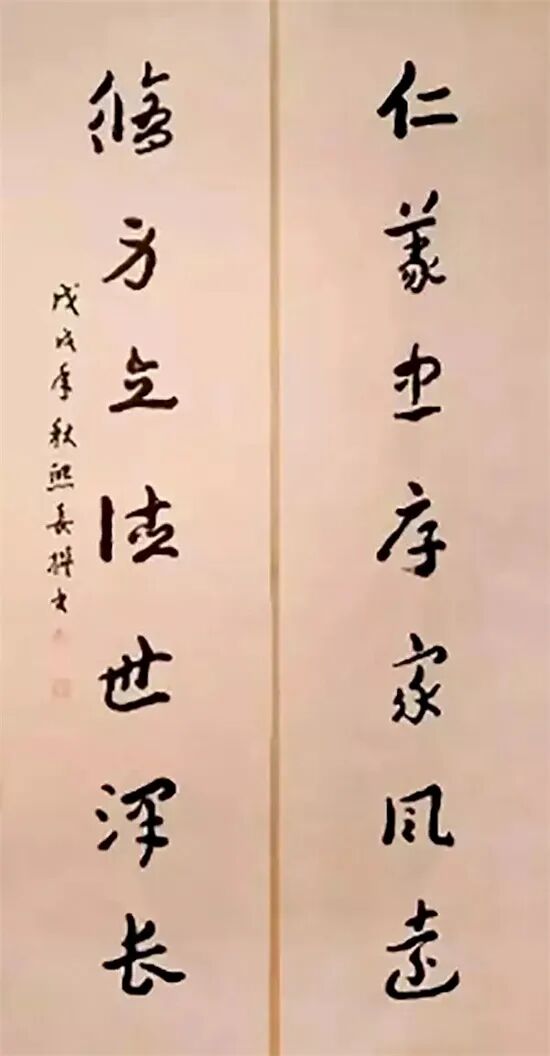 仁義忠厚家風遠
脩身立德世澤長
戊戌季秋熙撰書